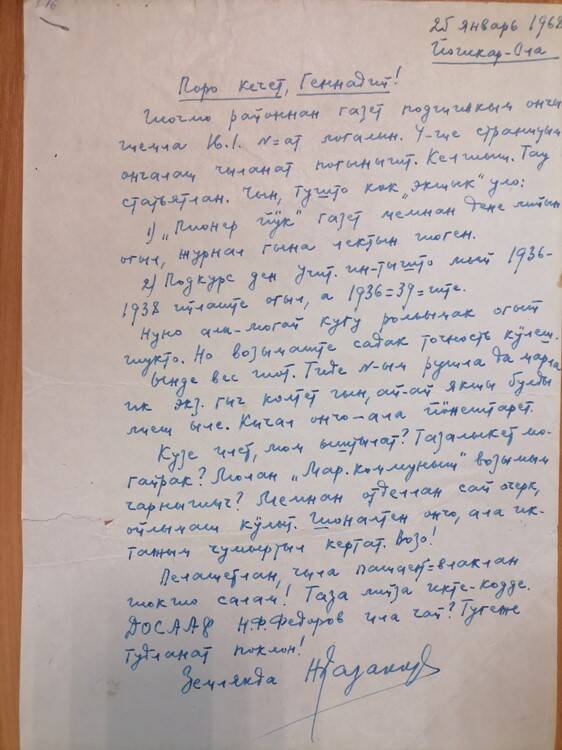 25 январь 1968
Йошкар-Ола
Поро кечет, Геннадий!
Шочмо районнан газет подшивкым ончы-
шемла 16.1. №=ат логалын. 4-ше страницым
ончалаш чыланат погынышт. Келшыш. Тау
статьятлан. Чын, тушто кок „экшык“ уло:
1) „Пионер йӱк“ газет мемнан дене лийын
огыл, журнал гына лектын шоген.
2) Подкурс ден Учит. ин-тышто мый 1936-
1938 ийлаште огыл, а 1936=39=ште.
Нуно ала-могай кугу рольымак огыт
шукто. Но возымаште садак точность кӱлеш.
Ынде вес шот. Тиде №-ым рушла да марла
ик экз. гыч колтет гын, ай-ай якшы булды
лиеш ыле. Кычал ончо-ала йӧнештарет.
Кузе илет, мом ыштылат? Тазалыкет мо-
гайрак? Молан „Мар. коммуныш“ возымым
чарнышыч? Мемнан отделлан сай очерк,
ойлымаш кӱлыт. Шоналтен ончо, ала ик-
тажым чумыртыл кертат. Возо!
Пелашетлан, чыла пашаеҥ=влаклан
шокшо салам! Таза лийза икте-кодде.
ДОСААФ Н.Ф.Федоров ила чай? Тугеже
тудланат поклон!
Землякда